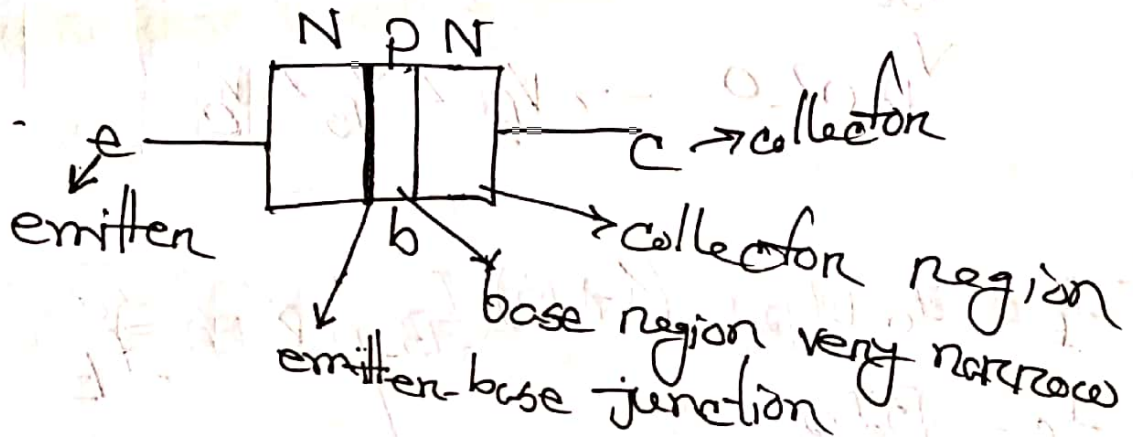 N P N
e
C → collector
emitter
b
collector region
base region very narrow
emitter-base junction